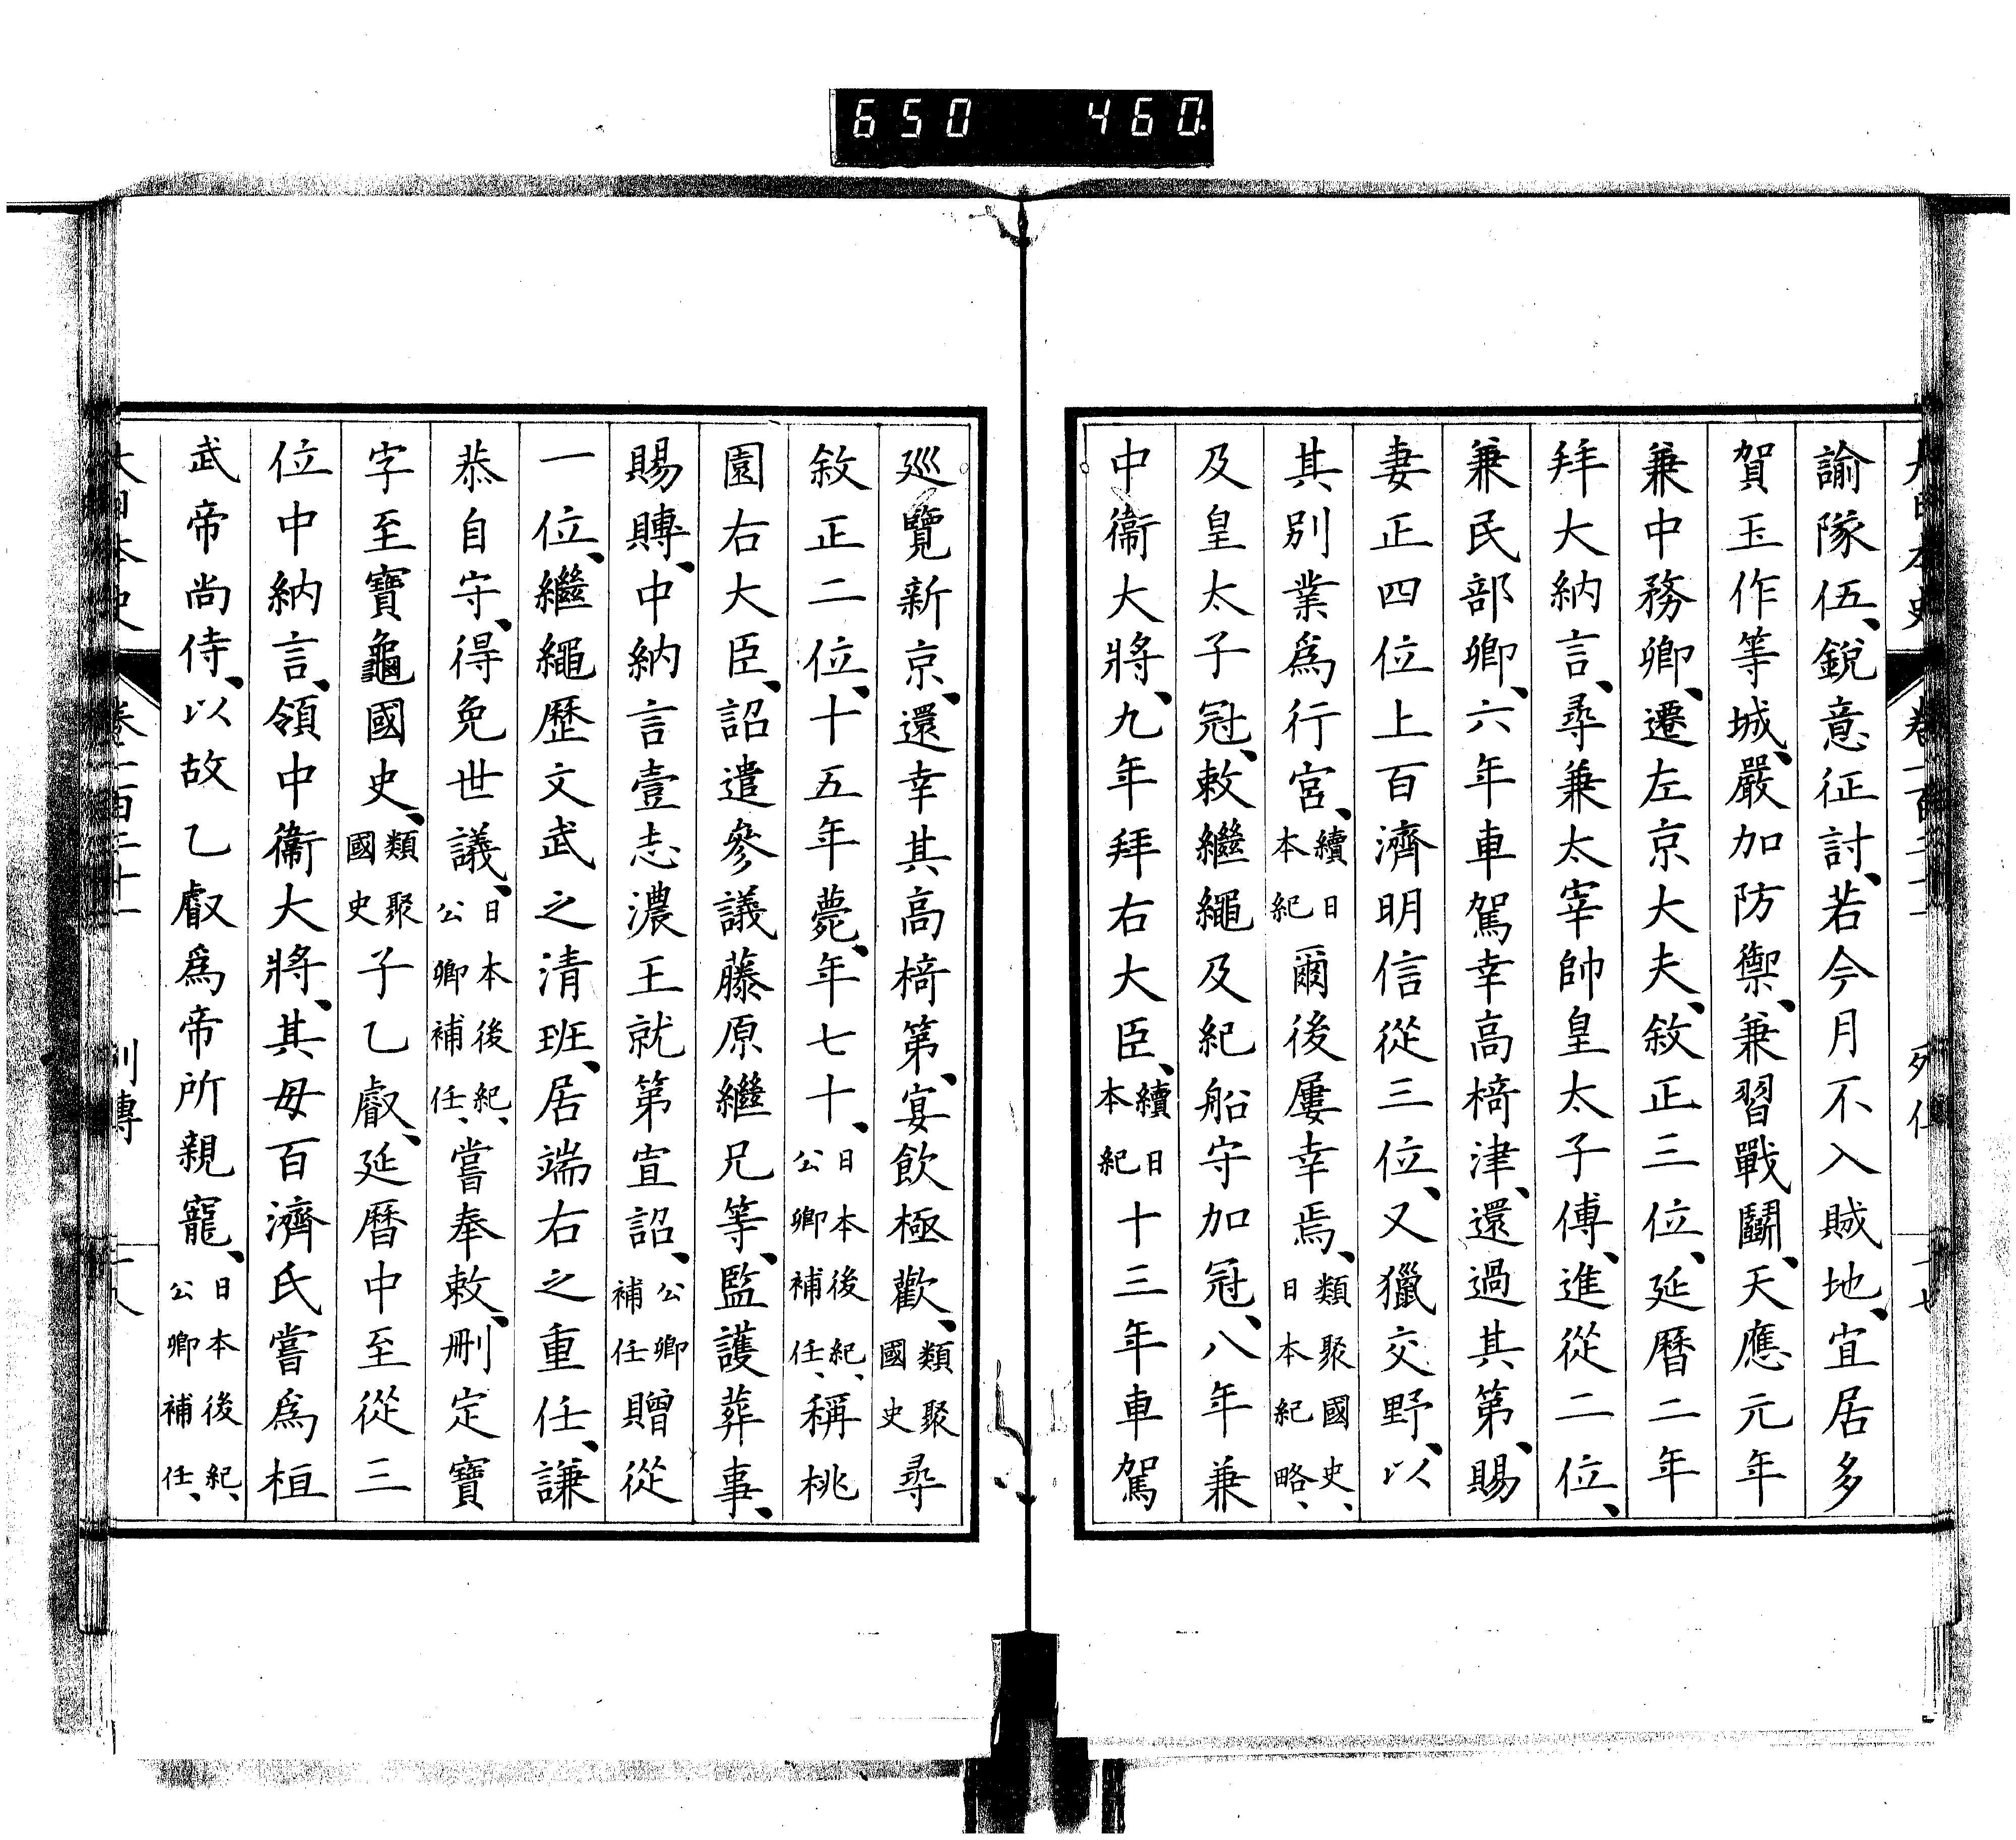 650 460
諭隊伍、銳意征討、若今月不入賊地、宜居多
賀玉作等城、嚴加防禦、兼習戰鬪、天應元年
兼中務卿、遷左京大夫、敘正三位、延曆二年
拜大納言、尋兼太宰帥皇太子傅、進從二位、
兼民部卿、六年車駕幸高椅津、還過其第、賜
妻正四位上百濟明信從三位、又獵交野、以
其別業爲行宮、續日本紀爾後屢幸焉、類聚國史、日本紀略、
及皇太子冠、敕繼繩及紀船守加冠、八年兼
中衞大將、九年拜右大臣、續日本紀十三年車駕
巡覽新京、還幸其高椅第、宴飮極歡、類聚國史尋
敘正二位、十五年薨、年七十、日本後紀、公卿補任、稱桃
園右大臣、詔遣參議藤原繼兄等、監護葬事、
賜賻、中納言壹志濃王就第宣詔、公卿補任贈從
一位、繼繩歷文武之清班、居端右之重任、謙
恭自守、得免世議、日本後紀、公卿補任、嘗奉敕、刪定寶
字至寶龜國史、類聚國史子乙叡、延曆中至從三
位中納言、領中衞大將、其母百濟氏嘗爲桓
武帝尚侍、以故乙叡爲帝所親寵、日本後紀、公卿補任、
大日本史 卷一百二十一 列傳